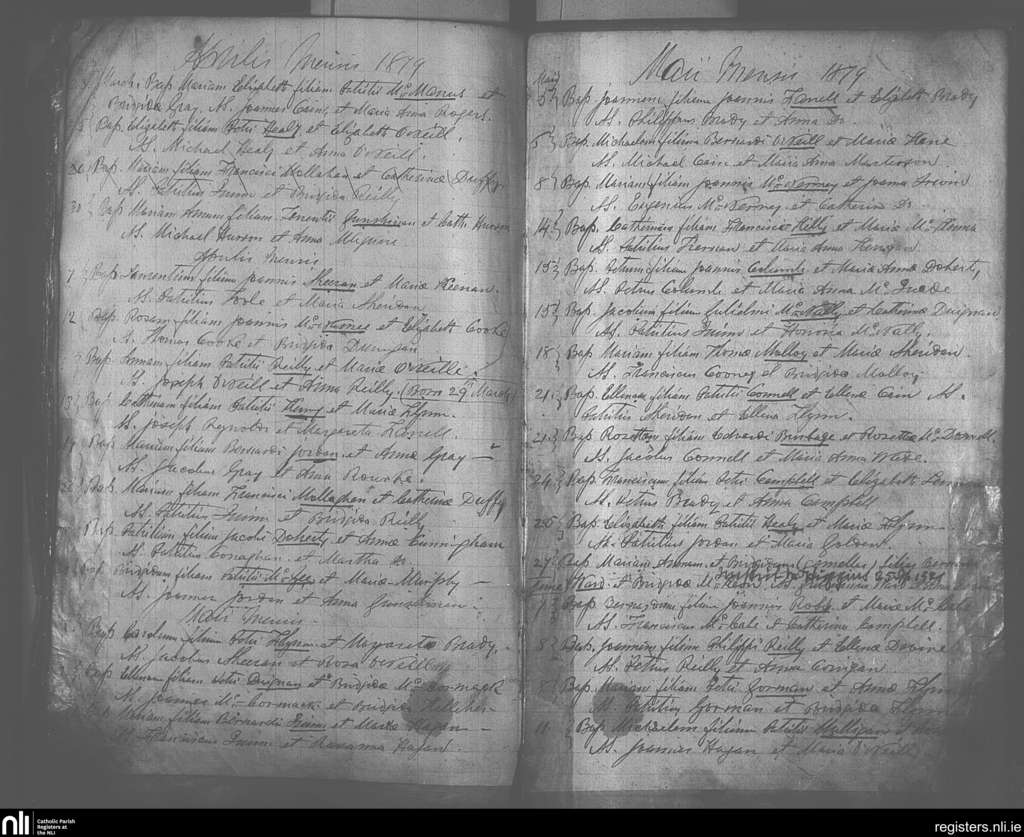 Aprilis Mensis 1879
Bap. Mariam Elizabeth filiam Patritii McManus et
Brigida Gray. As. Joannes Cain et Maria Anna Rogers.
Bap. Elizabeth filiam Petri Healy et Elizabeth O'Neill.
As. Michael Healy et Anna O'Neill.
30 Bap. Mariam filiam Francisci Mollahan et Catherinæ Duffy
As. Patritius Quinn et Brigida Reilly
30 Bap. Mariam Annam filiam Terentii et Cath. Hurson
As. Michael Hurson et Anna
Aprilis Mensis
7 Bap. Laurentium filium Joannis Sheeran et Mariæ Keenan.
As. Patritius Poole et Maria Sheridan
12 Bap. Rosam filiam Joannis et Elizabeth Cooke
As. Thomas Cooke et Brigida Dunigan
Bap. Annam filiam Patritii Reilly et Mariæ O'Reille.
As. Joseph O'Neill et Anna Reilly. (Born 29th March)
13 Bap. Catherinam filiam Patritii Henry et Mariæ Flynn.
As. Joseph Reynolds et Margareta Farrell.
Bap. Mariam filiam Bernardi Jordan et Annæ Gray
As. Jacobus Gray et Anna Rourke.
Bap. Mariam filiam Francisci Mollaghan et Catherinæ Duffy
As. Patritius Quinn et Brigida Reilly
Bap. Patritium filium Jacobi Doherty et Annæ Cunningham
As. Patritius Conaghan et Martha Do.
Bap. Brigidam filiam Patritii McGee et Mariæ Murphy
As. Joannes Jordan et Anna
Maii Mensis
Bap. Carolum filium Petri Flynn et Margaritæ Brady.
As. Jacobus Sheeran et Rosa O'Neill
Bap. Ellenam filiam Petri Duignan et Brigidæ McCormack
As. Joannes McCormack et Brigida Kelleher
Mariam filiam Bernardi Quinn et Maria Hagan
As. Franciscus Quinn et Rosanna Hagan.
Maii Mensis 1879
Maii
5 Bap. Joannem filium Joannis Farrell et Elizabeth Brady
As. Philippus Brady et Anna Do.
5 Bap. Michaelem filium Bernardi O'Neill et Mariæ Hane
As. Michael Cain et Maria Anna Masterson
8 Bap. Mariam filiam Joannis McKerney et Joanna Irwin
AS. Eugenius McKerney et Catherin Do.
14 Bap. Catherinam filiam Francisci Kelly et Maria McKenna
As. Patritius Kiernan et Maria Anna Kerrigan.
15 Bap. Petrum filium Joannis Columb et Maria Anna Doherty
As. Petrus Columb et Maria Anna McQuade
15 Bap. Jacobum filium Gulielmi McNally et Catherinæ Duignan
As. Patritius Quinn et Honoria McNally.
18 Bap. Mariam filiam Thomæ Molloy et Mariæ Sheridan.
As. Franciscus Cooney et Brigida Malloy
21 Bap. Ellenam filiam Patritii Connell et Ellenæ Cain As.
Patritius Sheridan et Ellena Flynn.
21 Bap. Rosettam filiam Edvardi Burbage et Rosetta McDonnell.
As. Jacobus Connell et Maria Anna Wade.
24 Bap. Franciscum filium Petri Campbell et Elizabeth
As. Petrus Brady et Anna Campbell
25 Bap. Elizabeth filiam Patritii Healy et Mariæ Flynn
As. Patritius Jordan et Maria Golden.
27 Bap. Mariam Annam et Brigidam (Gemellæ) filias Bernardi
Ward et Brigidæ
Bap. Bernardum filium Joannis Robb et Mariæ McCabe
As. Franciscus McCabe et Catherina Campbell.
8 Bap. Joannem filium Philippi Reilly et Ellenæ Devine
As. Petrus Reilly et Anna Corrigan
Bap. Mariam filiam Petri Gorman et Annæ Flynn
As. Patritius Gorman et Brigida Flynn
11 Bap. Michaelem filium Patritii Mulligan
As. Joannes Hagan et Maria O'Neill
nli
Catholic Parish
Registers at
the NLI
registers.nli.ie